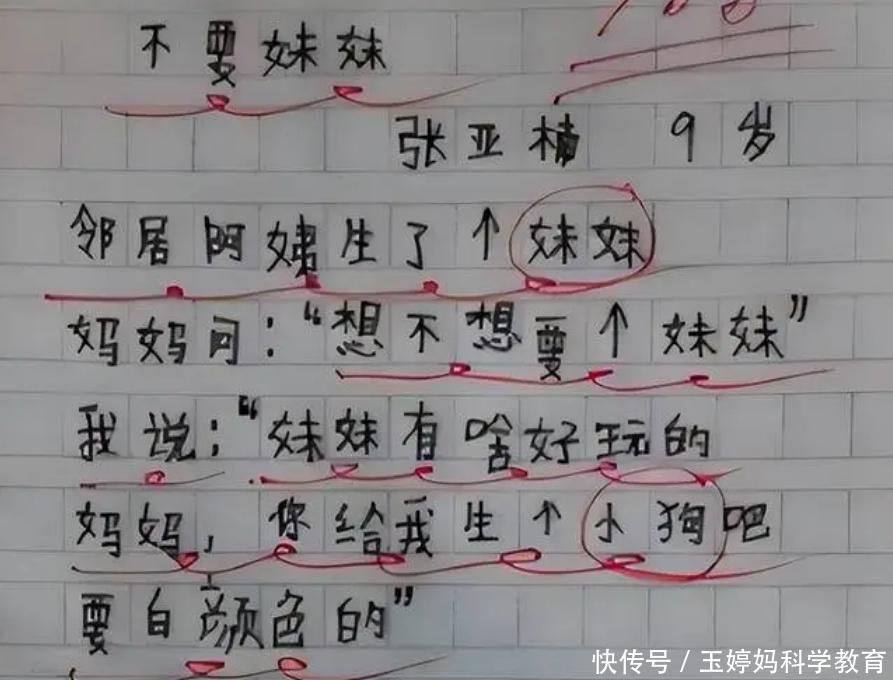 不要妹妹
张亚楠 9岁
邻居阿姨生了个妹妹
妈妈问：“想不想要个妹妹”
我说：“妹妹有啥好玩的
妈妈，你给我生个小狗吧
要白颜色的”
快传号 / 玉婷妈科学教育